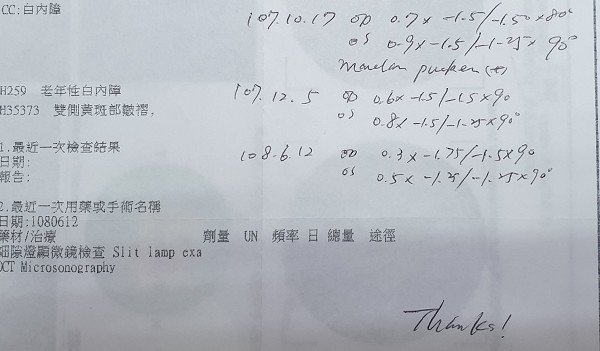 CC:白內障
107.10.17 OD 0.7x -1.5/-1.50x80°
OS 0.9x -1.5/-1.25x90°
pucker (+)
H259 老年性白內障
107.12.5 OD 0.6x -1.5/-1.5x90
H35373 雙側黃斑部皺褶,
OS 0.8x -1.5/-1.25x90°
1.最近一次檢查結果
108.6.12 OD 0.3x -1.75/-1.5x90
日期:
報告:
OS 0.5x -1.25/-1.25x90°
2.最近一次用藥或手術名稱
日期:1080612
藥材/治療 劑量 UN 頻率 日 總量 途徑
細隙燈顯微鏡檢查 Slit lamp exa
OCT Microsonography
Thanks!